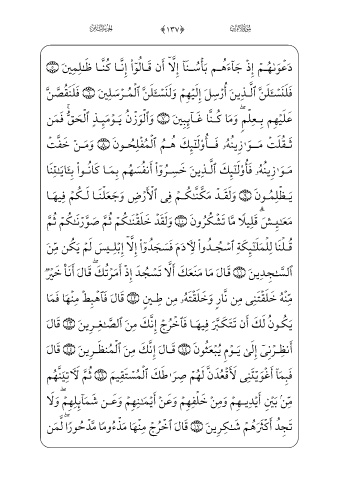 سورة الأعراف ﴿١٣٧﴾ الجزء الثامن
دَعۡوَىٰهُمۡ إِذۡ جَآءَهُم بَأۡسُنَآ إِلَّآ أَن قَالُوٓاْ إِنَّا كُنَّا ظَٰلِمِينَ ۝٥
فَلَنَسۡـَٔلَنَّ ٱلَّذِينَ أُرۡسِلَ إِلَيۡهِمۡ وَلَنَسۡـَٔلَنَّ ٱلۡمُرۡسَلِينَ ۝٦ فَلَنَقُصَّنَّ
عَلَيۡهِم بِعِلۡمٖۖ وَمَا كُنَّا غَآئِبِينَ ۝٧ وَٱلۡوَزۡنُ يَوۡمَئِذٍ ٱلۡحَقُّۚ فَمَن
ثَقُلَتۡ مَوَٰزِينُهُۥ فَأُوْلَٰٓئِكَ هُمُ ٱلۡمُفۡلِحُونَ ۝٨ وَمَنۡ خَفَّتۡ
مَوَٰزِينُهُۥ فَأُوْلَٰٓئِكَ ٱلَّذِينَ خَسِرُوٓاْ أَنفُسَهُم بِمَا كَانُواْ بِـَٔايَٰتِنَا
يَظۡلِمُونَ ۝٩ وَلَقَدۡ مَكَّنَّٰكُمۡ فِي ٱلۡأَرۡضِ وَجَعَلۡنَا لَكُمۡ فِيهَا
مَعَٰيِشَۗ قَلِيلٗا مَّا تَشۡكُرُونَ ۝١٠ وَلَقَدۡ خَلَقۡنَٰكُمۡ ثُمَّ صَوَّرۡنَٰكُمۡ ثُمَّ
قُلۡنَا لِلۡمَلَٰٓئِكَةِ ٱسۡجُدُواْ لِأٓدَمَ فَسَجَدُوٓاْ إِلَّآ إِبۡلِيسَ لَمۡ يَكُن مِّنَ
ٱلسَّٰجِدِينَ ۝١١ قَالَ مَا مَنَعَكَ أَلَّا تَسۡجُدَ إِذۡ أَمَرۡتُكَۖ قَالَ أَنَا۠ خَيۡرٞ
مِّنۡهُ خَلَقۡتَنِي مِن نَّارٖ وَخَلَقۡتَهُۥ مِن طِينٖ ۝١٢ قَالَ فَٱهۡبِطۡ مِنۡهَا فَمَا
يَكُونُ لَكَ أَن تَتَكَبَّرَ فِيهَا فَٱخۡرُجۡ إِنَّكَ مِنَ ٱلصَّٰغِرِينَ ۝١٣ قَالَ
أَنظِرۡنِيٓ إِلَىٰ يَوۡمِ يُبۡعَثُونَ ۝١٤ قَالَ إِنَّكَ مِنَ ٱلۡمُنظَرِينَ ۝١٥ قَالَ
فَبِمَآ أَغۡوَيۡتَنِي لَأَقۡعُدَنَّ لَهُمۡ صِرَٰطَكَ ٱلۡمُسۡتَقِيمَ ۝١٦ ثُمَّ لَأٓتِيَنَّهُم
مِّنۢ بَيۡنِ أَيۡدِيهِمۡ وَمِنۡ خَلۡفِهِمۡ وَعَنۡ أَيۡمَٰنِهِمۡ وَعَن شَمَآئِلِهِمۡۖ وَلَا
تَجِدُ أَكۡثَرَهُمۡ شَٰكِرِينَ ۝١٧ قَالَ ٱخۡرُجۡ مِنۡهَا مَذۡءُومٗا مَّدۡحُورٗاۖ لَّمَن